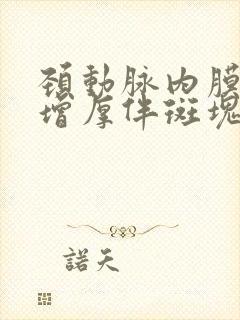 頸動脉内膜
增厚伴斑塊
諾天